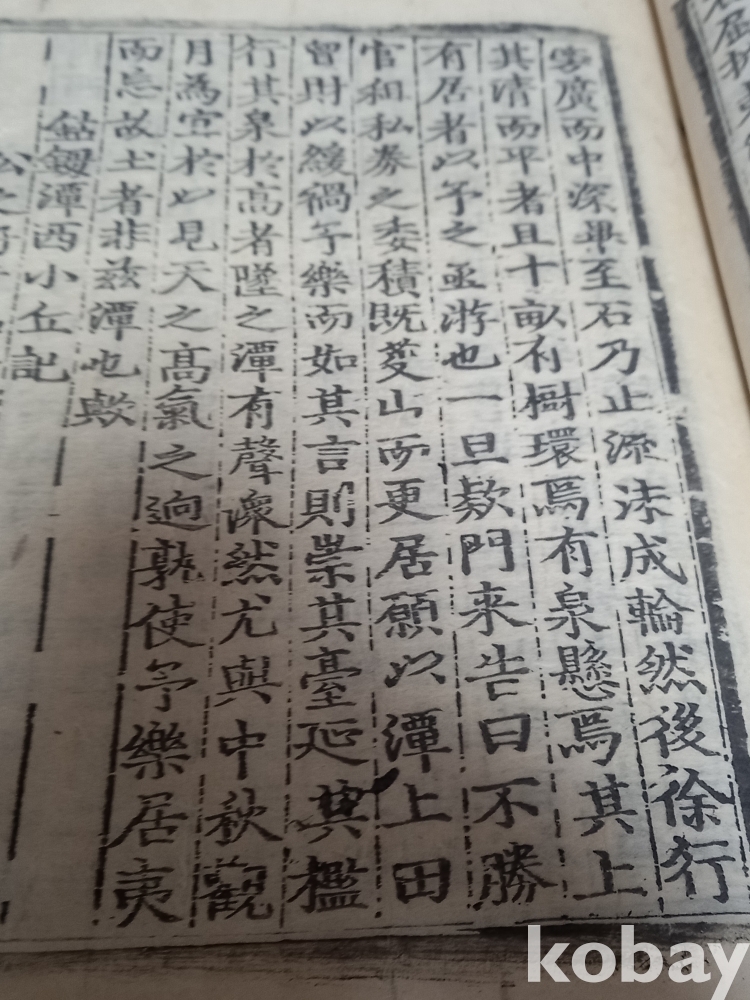 旁廣而中深畢至石乃止流沫成輪然後徐行
其清而平者且十畝有樹環焉有泉懸焉其上
有居者以予之亟游也一旦款門来告曰不勝
官租私券之委積既芟山而更居願以潭上田
貿財以緩禍予樂而如其言則崇其臺延其檻
行其泉於高者墜之潭有聲潀然尤與中秋觀
月為宜於以見天之高氣之逈孰使予樂居夷
而忘故土者非茲潭也歟
鈷鉧潭西小丘記
kobay